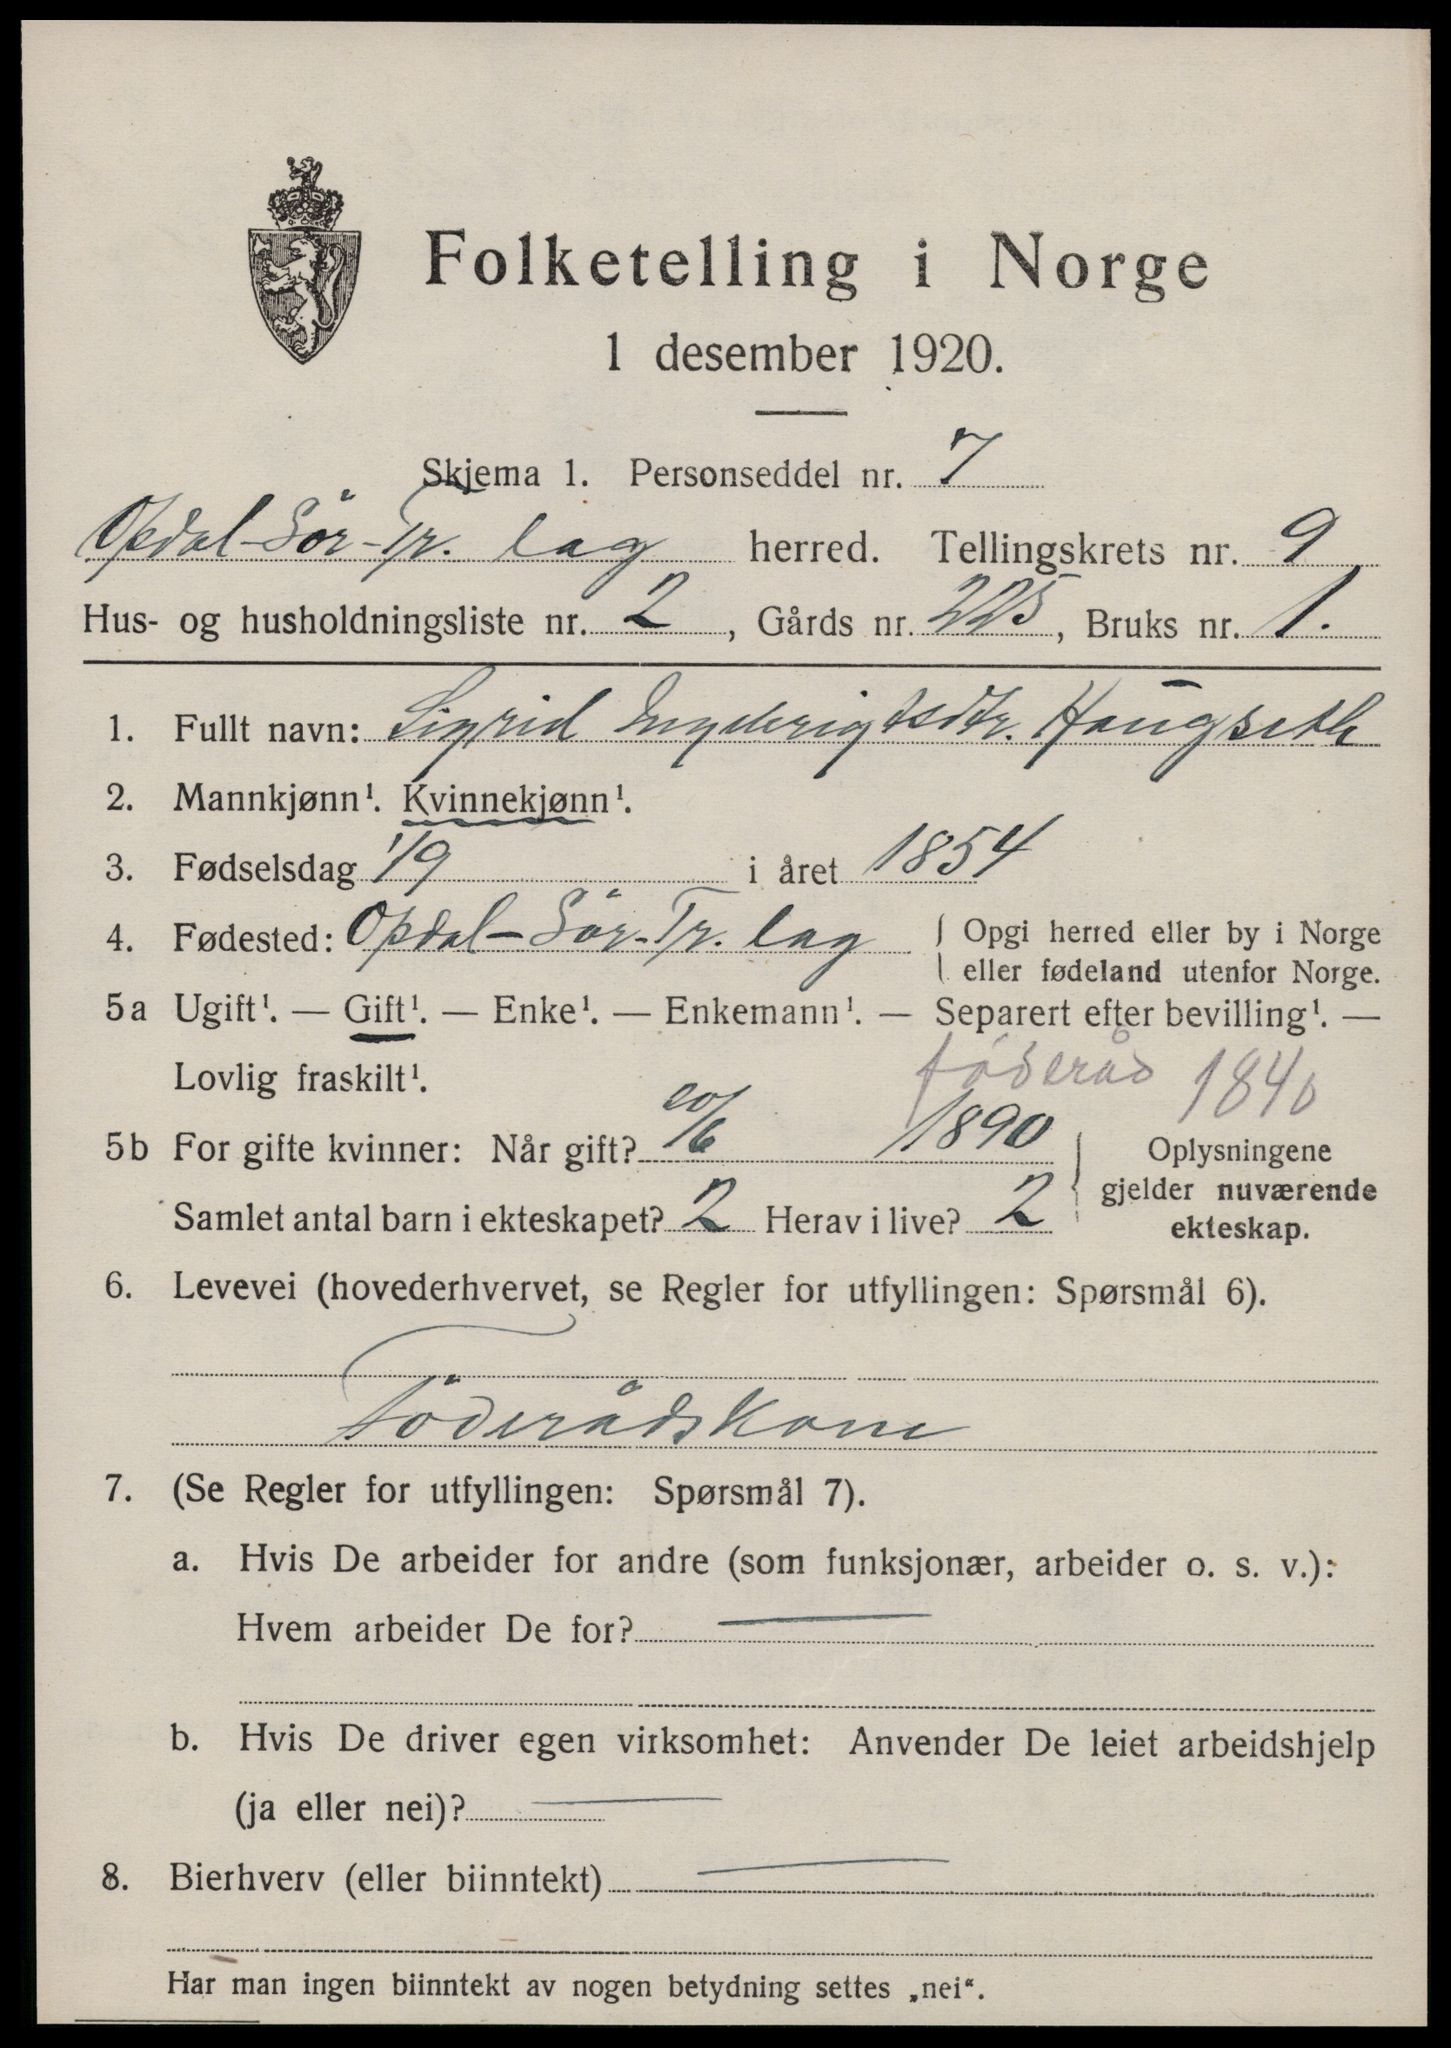 Folketelling i Norge
1 desember 1920.
Skjema 1. Personseddel nr. 7
Opdal-Sör-Tr. lag herred. Tellingskrets nr. 9
Hus- og husholdningsliste nr. 2, Gårds nr. 225, Bruks nr. 1.
1. Fullt navn: Sigrid Haugseth
2. Mannkjønn¹. Kvinnekjønn¹.
3. Fødselsdag 1/9 i året 1854
4. Fødested: Opdal-Sör-Tr. lag { Opgi herred eller by i Norge
eller fødeland utenfor Norge.
5a Ugift¹. — Gift¹. — Enke¹. — Enkemann¹. — Separert efter bevilling¹. —
Lovlig fraskilt¹. föderåd 1840
5b For gifte kvinner: Når gift? 20/6 1890 } Oplysningene
gjelder nuværende
Samlet antal barn i ekteskapet? 2 Herav i live? 2
ekteskap.
6. Levevei (hovederhvervet, se Regler for utfyllingen: Spørsmål 6).
Föderådskone
7. (Se Regler for utfyllingen: Spørsmål 7).
a. Hvis De arbeider for andre (som funksjonær, arbeider o. s. v.):
Hvem arbeider De for? —
b. Hvis De driver egen virksomhet: Anvender De leiet arbeidshjelp
(ja eller nei)? —
8. Bierhverv (eller biinntekt) —
Har man ingen biinntekt av nogen betydning settes „nei“.